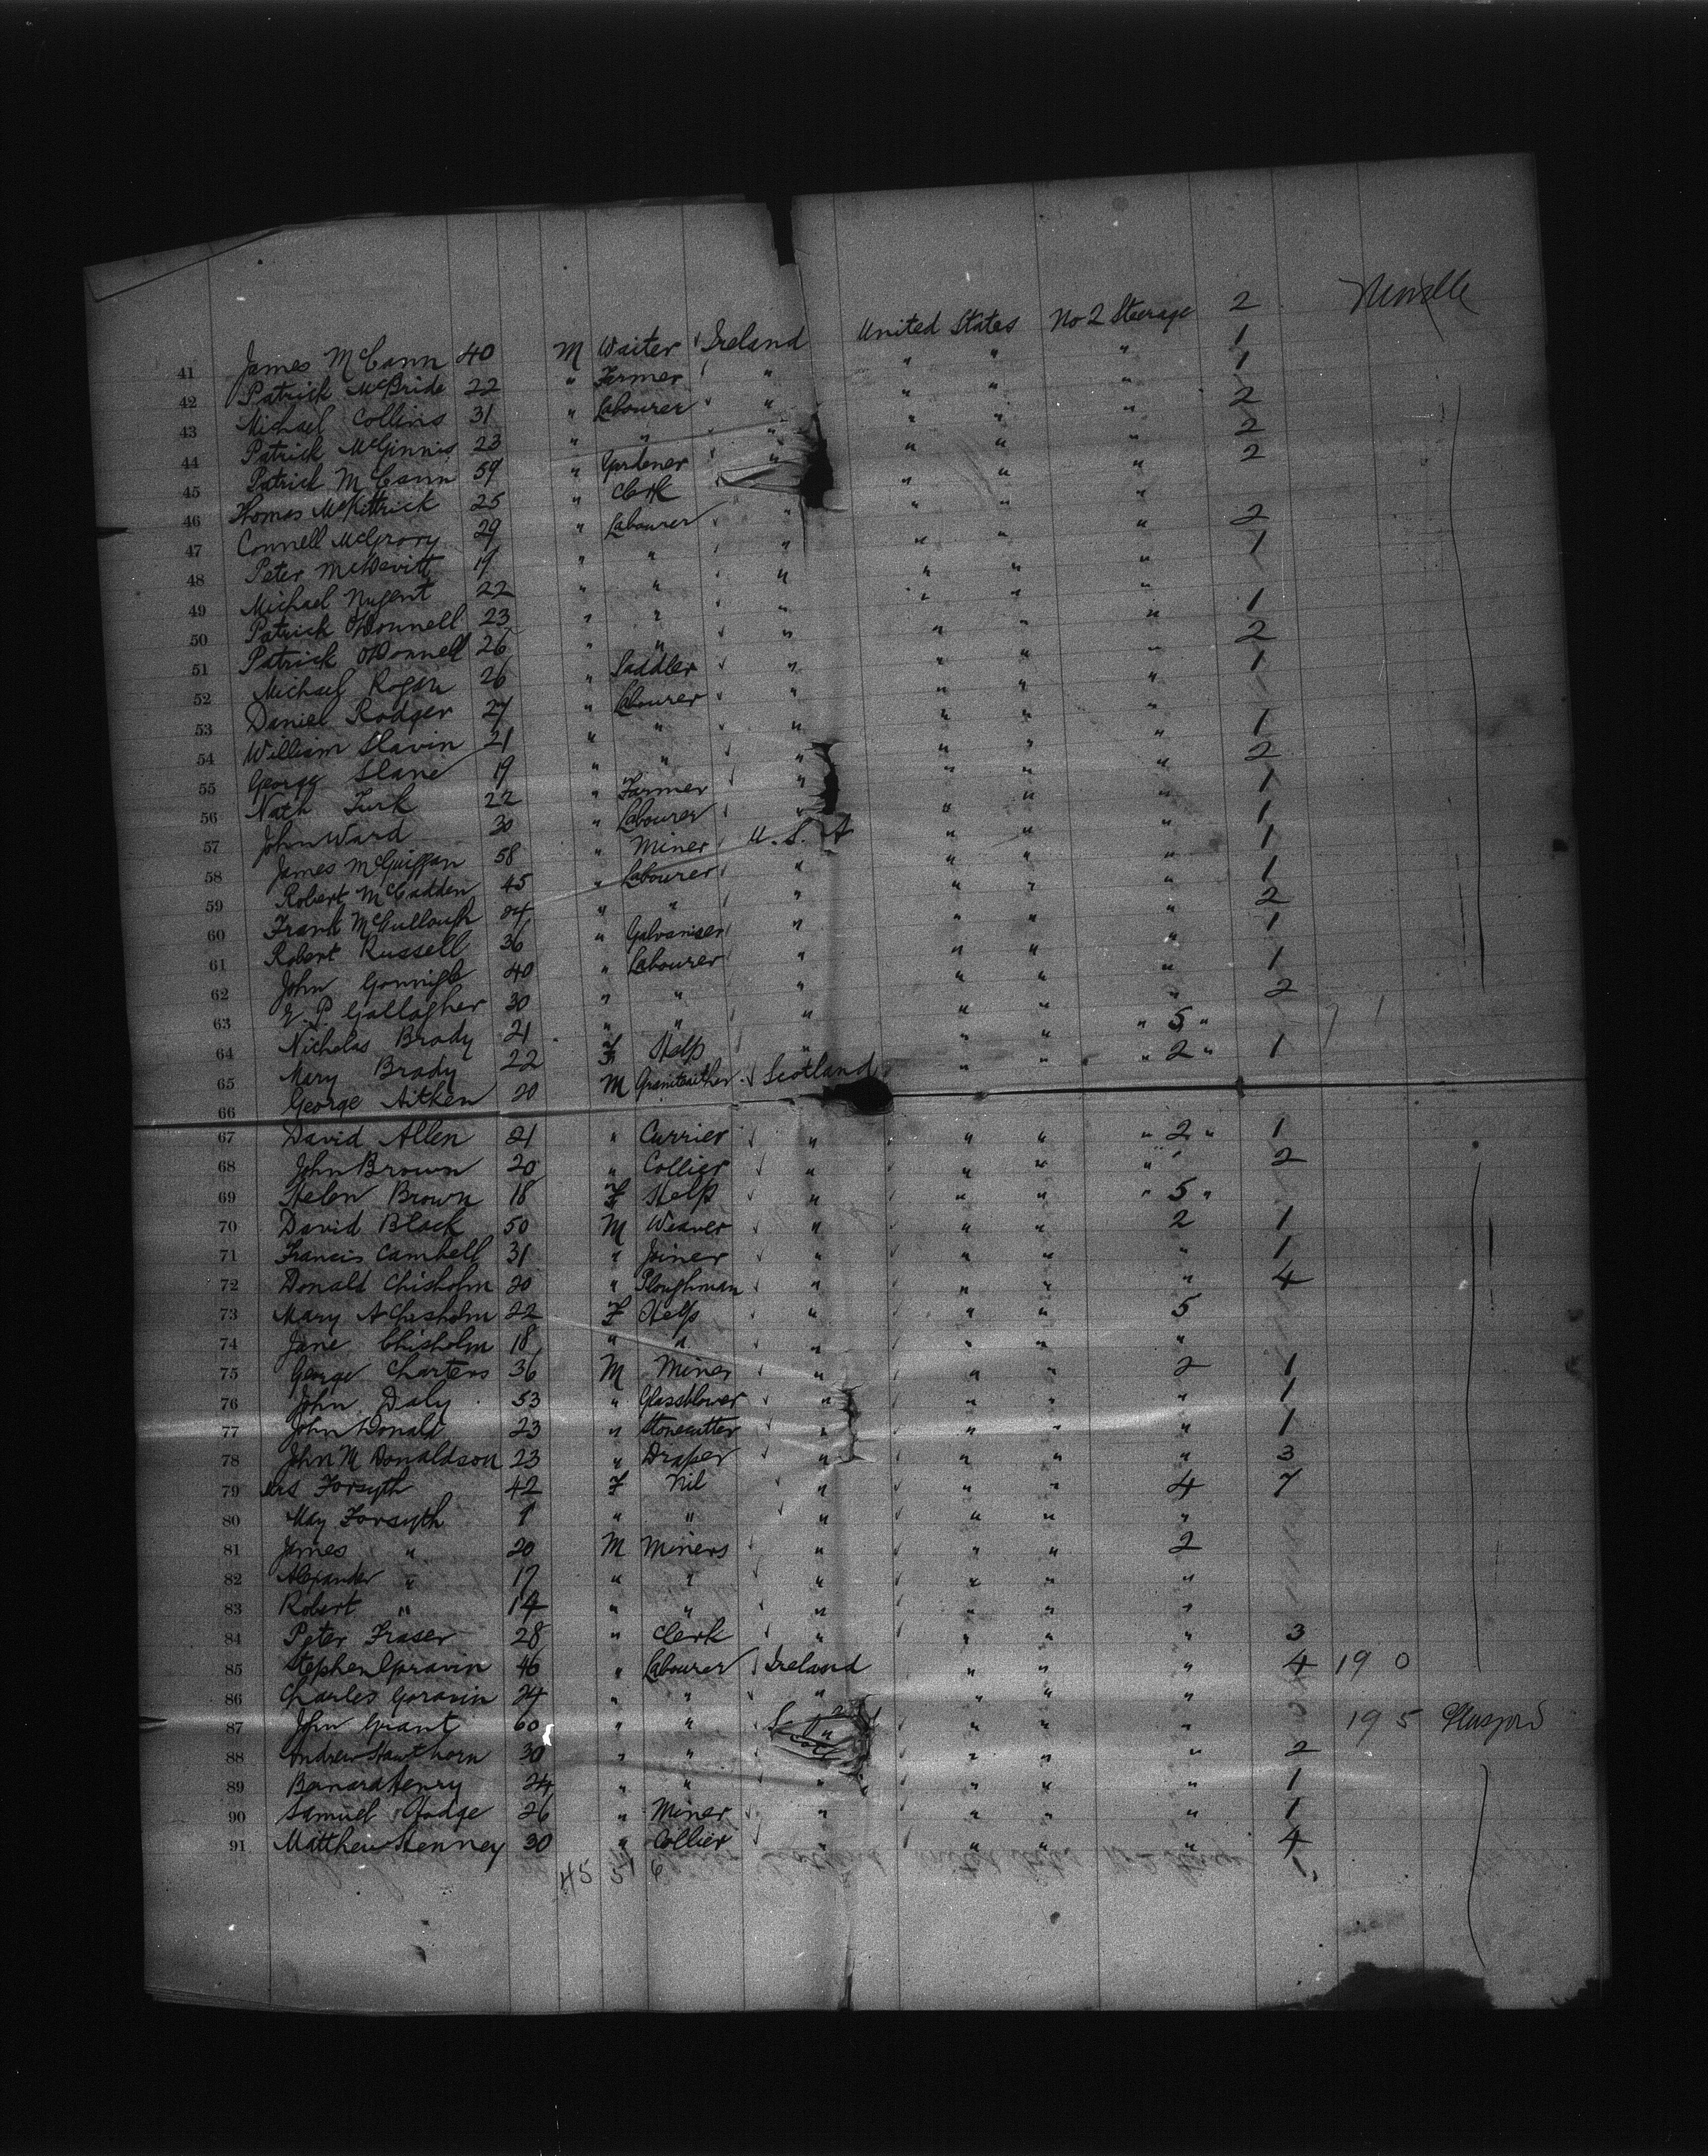 41 James McCann 40 M Waiter Ireland United States No 2 Steerage 2
42 Patrick McBride 22 " Farmer " " " " 1
43 Michael Collins 31 " Labourer " " " " 1
44 Patrick McGinnis 23 " " " " " " 2
45 Patrick McCann 59 " Gardener " " " " 2
46 Thomas McKittrick 25 " Clerk " " " 2
47 Connell McGrory 29 " Labourer " " " "
48 Peter McDevitt 19 " " " " " " 2
49 Michael Nugent 22 " " " " " " 1
50 Patrick O'Donnell 23 " " " " " "
51 Patrick O'Donnell 26 " " " " " " 1
52 Michael Rogan 26 " Saddler " " " " 2
53 Daniel Rodger 27 " Labourer " " " " 1
54 William Slavin 21 " " " " " "
55 George Slane 19 " " " " " " 1
56 Nath Turk 22 " Farmer " " " " 2
57 John Ward 30 " Labourer " " " " 1
58 James McGuiggan 58 " Miner U.S.A " " " 1
59 Robert McCadden 45 " Labourer " " " " 1
60 Frank McCullough 24 " " " " " " 1
61 Robert Russell 36 " Galvaniser " " " " 2
62 John Gonnigle 40 " Labourer " " " " 1
63 Gallagher 30 " " " " " " 1
64 Nicholas Brady 21 " " " " " " 2
65 Mary Brady 22 F Help " " " " 5 "
66 George Aitken 20 M Scotland " " " 2 " 1
67 David Allen 21 " Currier " " " " 2 " 1
68 John Brown 20 " Collier " " " " 2
69 Helen Brown 18 F Help " " " " 5 "
70 David Black 50 M Weaver " " " 2 1
71 Francis Cambell 31 " Joiner " " " " 1
72 Donald Chisholm 20 " Ploughman " " " " 4
73 Mary A Chisholm 22 F Help " " " 5
74 Jane Chisholm 18 " " " " " "
75 George Charters 36 M Miner " " " 2 1
76 John Daly 53 " Glassblower " " " " 1
77 John Donald 23 " Stonecutter " " " " 1
78 John M Donaldson 23 " Draper " " " " 3
79 Mrs Forsyth 42 F Nil " " " 4 7
80 May Forsyth 1 " " " " " "
81 James " 20 M Miners " " " 2
82 Alexander " 17 " " " " " "
83 Robert " 14 " " " " " "
84 Peter Fraser 28 " Clerk " " " " 3
85 Stephen Gravin 46 " Labourer Ireland " " " 4 19 0
86 Charles Goravin 24 " " " " " "
87 John Grant 60 " " " " " 19 5 Glasgow
88 Andrew Hawthorn 30 " " " " " " 2
89 Bernard Henry 24 " " " " " " 1
90 Samuel Hodge 26 " Miner " " " " 1
91 Matthew Henney 30 " Collier " " " " 4
45 6